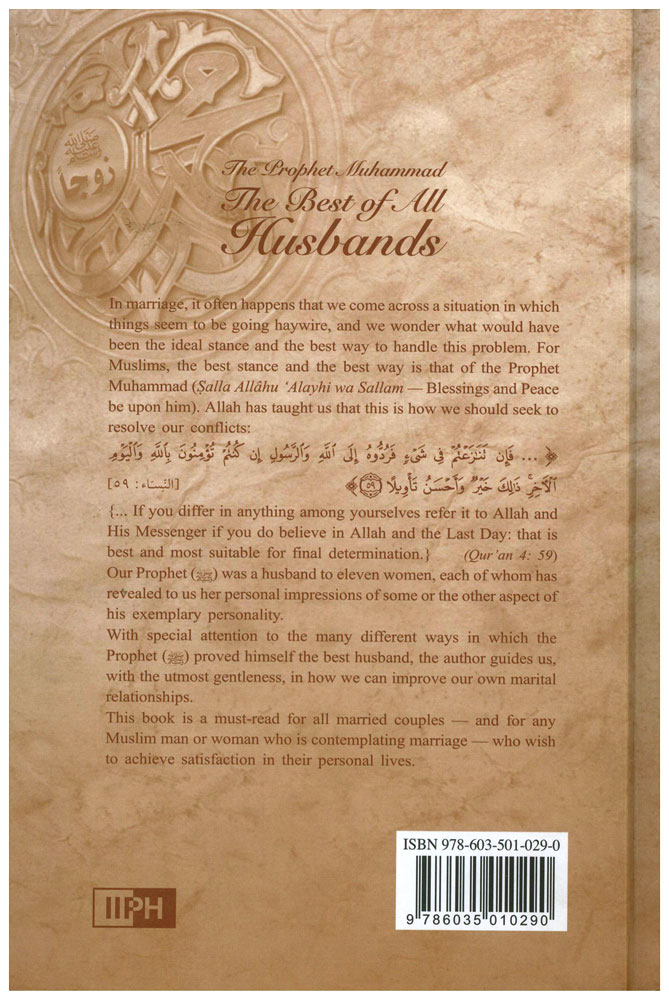 محمد
صلى الله عليه وسلم
زوجاً
The Prophet Muhammad
The Best of All
Husbands
In marriage, it often happens that we come across a situation in which
things seem to be going haywire, and we wonder what would have
been the ideal stance and the best way to handle this problem. For
Muslims, the best stance and the best way is that of the Prophet
Muhammad (Ṣalla Allâhu ‘Alayhi wa Sallam — Blessings and Peace
be upon him). Allah has taught us that this is how we should seek to
resolve our conflicts:
﴿ ... فَإِن تَنَـٰزَعْتُمْ فِى شَىْءٍ فَرُدُّوهُ إِلَى ٱللَّهِ وَٱلرَّسُولِ إِن كُنتُمْ تُؤْمِنُونَ بِٱللَّهِ وَٱلْيَوْمِ
ٱلْـَٔاخِرِ ۚ ذَٰلِكَ خَيْرٌ وَأَحْسَنُ تَأْوِيلًا ٥٩ ﴾ [النِّسَاء: ٥٩]
{... If you differ in anything among yourselves refer it to Allah and
His Messenger if you do believe in Allah and the Last Day: that is
best and most suitable for final determination.} (Qur’an 4: 59)
Our Prophet (ﷺ) was a husband to eleven women, each of whom has
revealed to us her personal impressions of some or the other aspect of
his exemplary personality.
With special attention to the many different ways in which the
Prophet (ﷺ) proved himself the best husband, the author guides us,
with the utmost gentleness, in how we can improve our own marital
relationships.
This book is a must-read for all married couples — and for any
Muslim man or woman who is contemplating marriage — who wish
to achieve satisfaction in their personal lives.
ISBN 978-603-501-029-0
9 786035 010290
IIPH